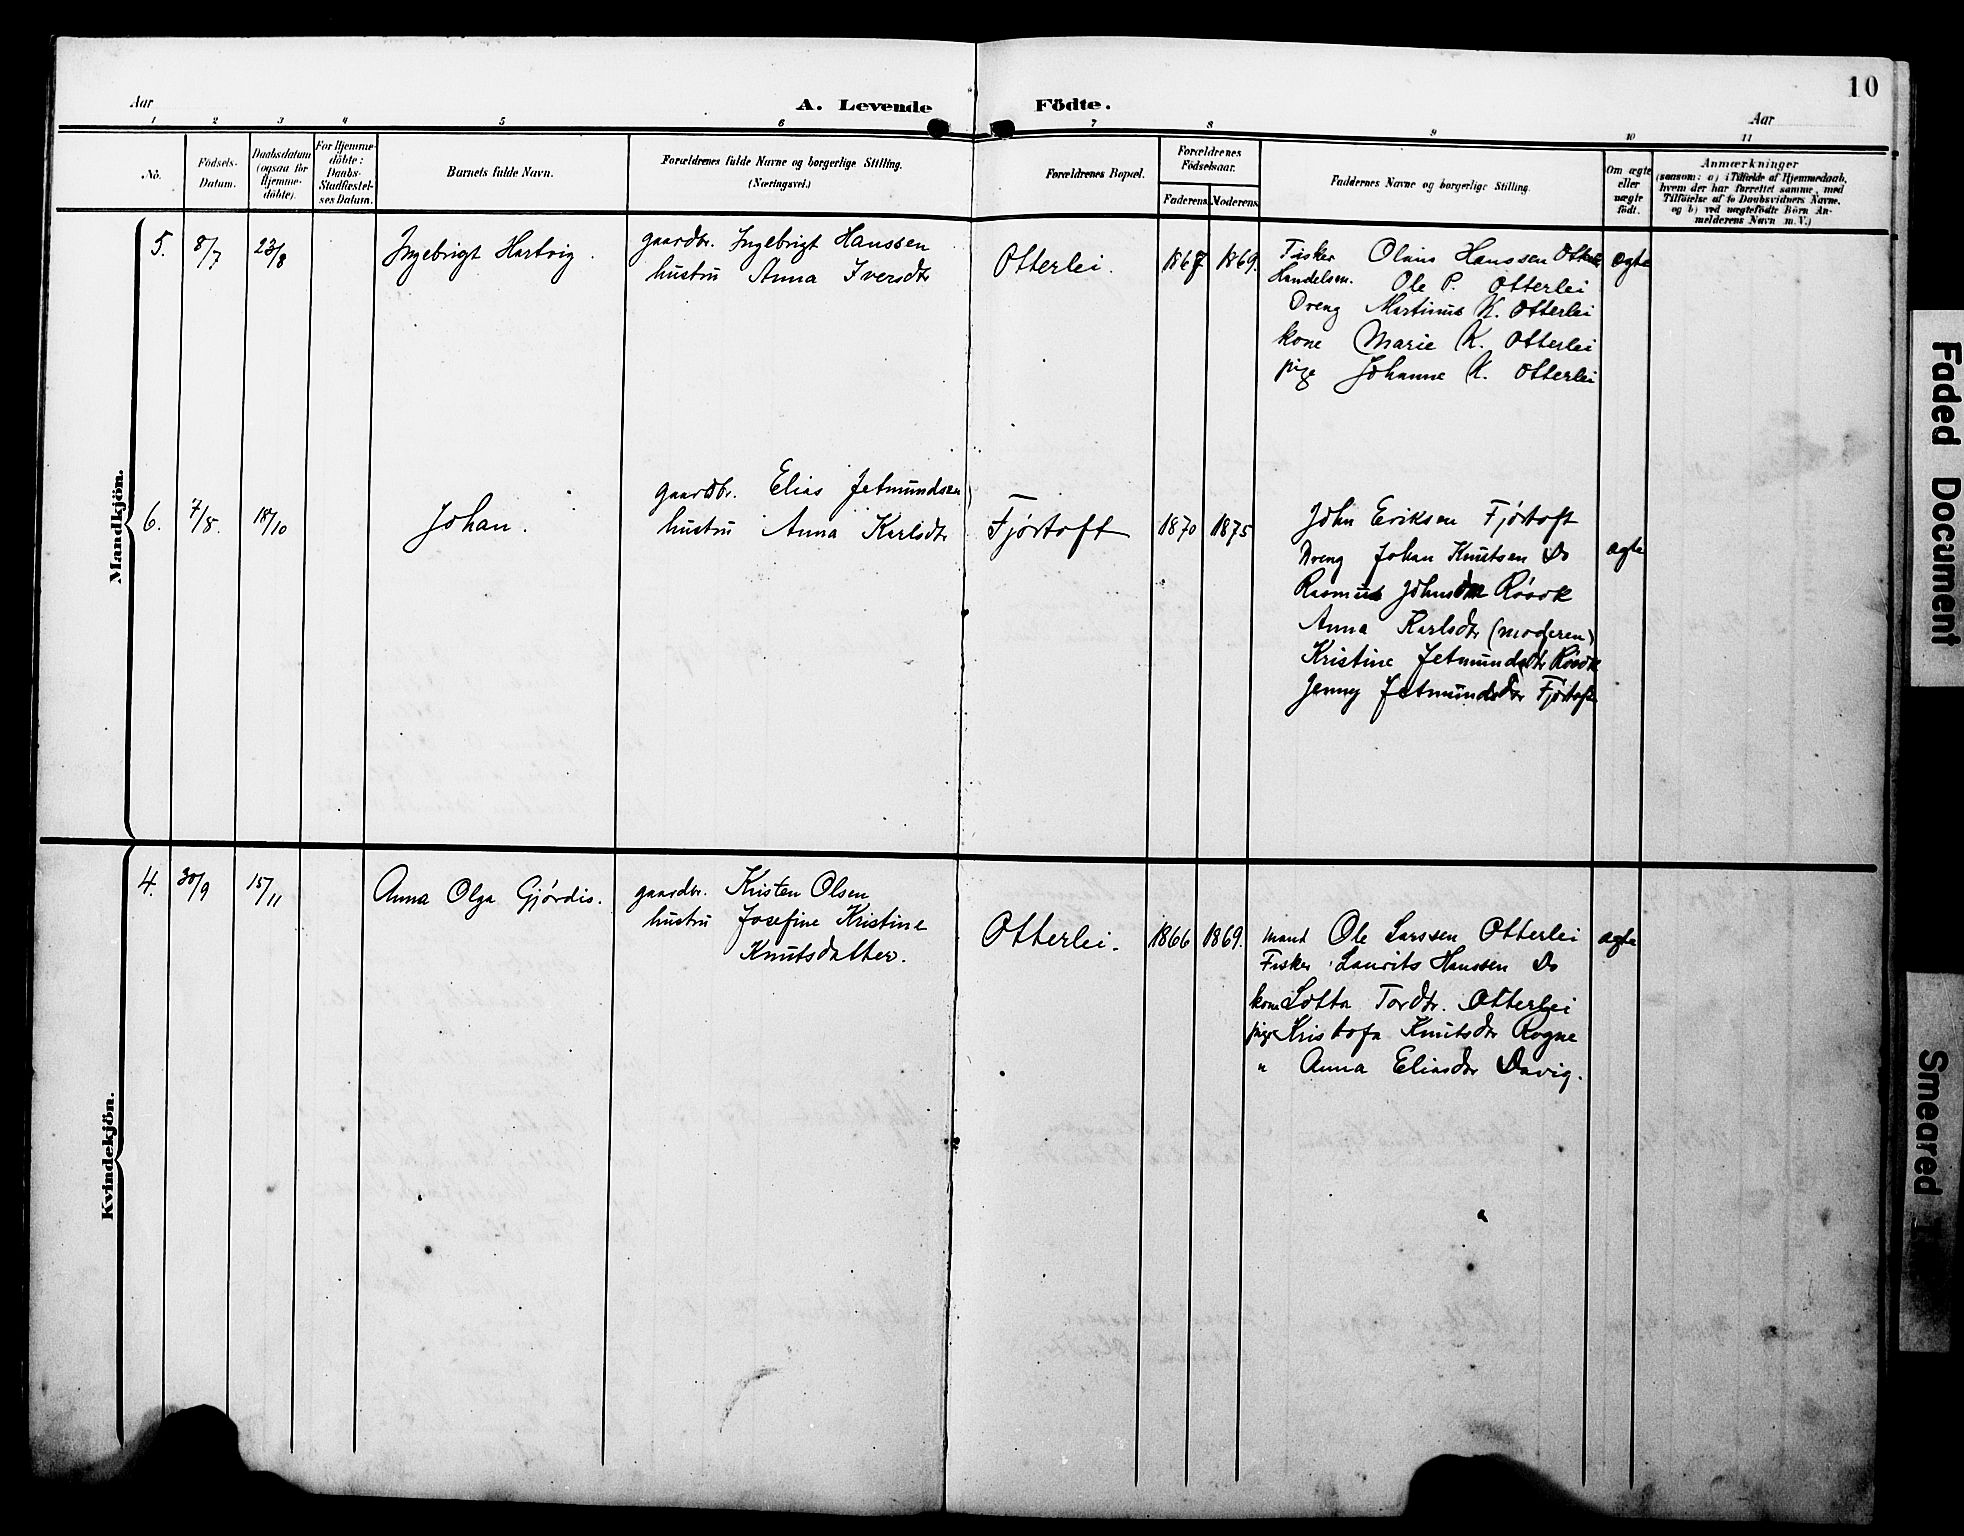 10
Aar
A. Levende Födte.
Aar
1 2 3 4 5 6 7 8 9 10 11
No.
Födsels-
Datum.
Daabsdatum
(ogsaa for
Hjemme-
döbte).
For Hjemme-
döbte:
Daabs-
Stadfæstel-
ses Datum.
Barnets fulde Navn.
Forældrenes fulde Navne og borgerlige Stilling.
(Næringsvei.)
Forældrenes Bopæl.
Forældrenes
Födselsaar.
Faderens. Moderens.
Faddernes Navne og borgerlige Stilling.
Om ægte
eller
uægte
födt.
Anmærkninger
(saasom: a) i Tilfælde af Hjemmedaab,
hvem der har forrettet samme, med
Tilföielse af to Daabsvidners Navne.
og b) ved uægtefödte Börn An-
melderens Navn m.V.)
Mandkjön.
5. 8/7 23/8 Ingebrigt Hartvig.
gaardbr. Ingebrigt Hanssen
hustru Anna Iversdtr
Otterlei. 1867 1869.
Fisker Olaus Hanssen
Handelsm. Ole P. Otterlei
Dreng Martinus K. Otterlei
kone Marie K. Otterlei
pige Johanne K. Otterlei
ægte
6. 7/8. 18/10 Johan.
gaardbr. Elias Jetmundsen
hustru Anna Karlsdtr
Fjørtoft 1870 1875
John Eriksen Fjørtoft
Dreng Johan Knutsen Do
Rasmus Røsok
Anna Karlsdtr (moderen)
Kristine Jetmundsdtr Røsok
Jenny Jetmundsdtr Fjørtoft
ægte
Kvindekjön.
4. 30/9 15/11 Anna Olga Gjørdis.
gaardbr. Kristen Olsen
hustru Josefine Kristine
Knutsdatter.
Otterlei. 1866 1869.
mand Ole Larssen Otterlei
Fisker Laurits Hanssen Do
kone Lotta Tordtr. Otterlei
pige Kristofa Knutsdtr Rogne
" Anna Eliasdtr Davig.
ægte
Faded Document
Smeared